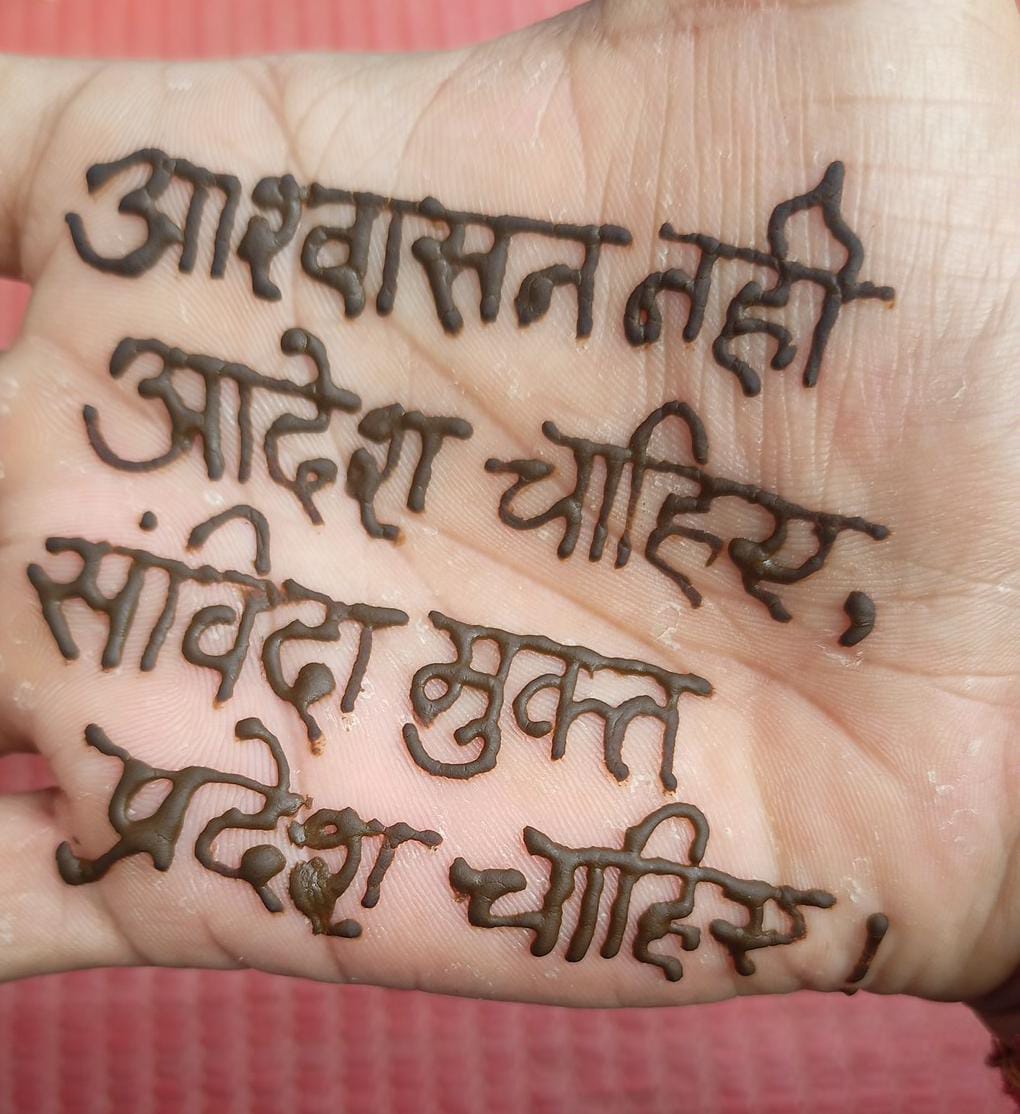 आश्वासन नही
आदेश चाहिए,
सांविदा मुक्त
प्रदेश चाहिए।